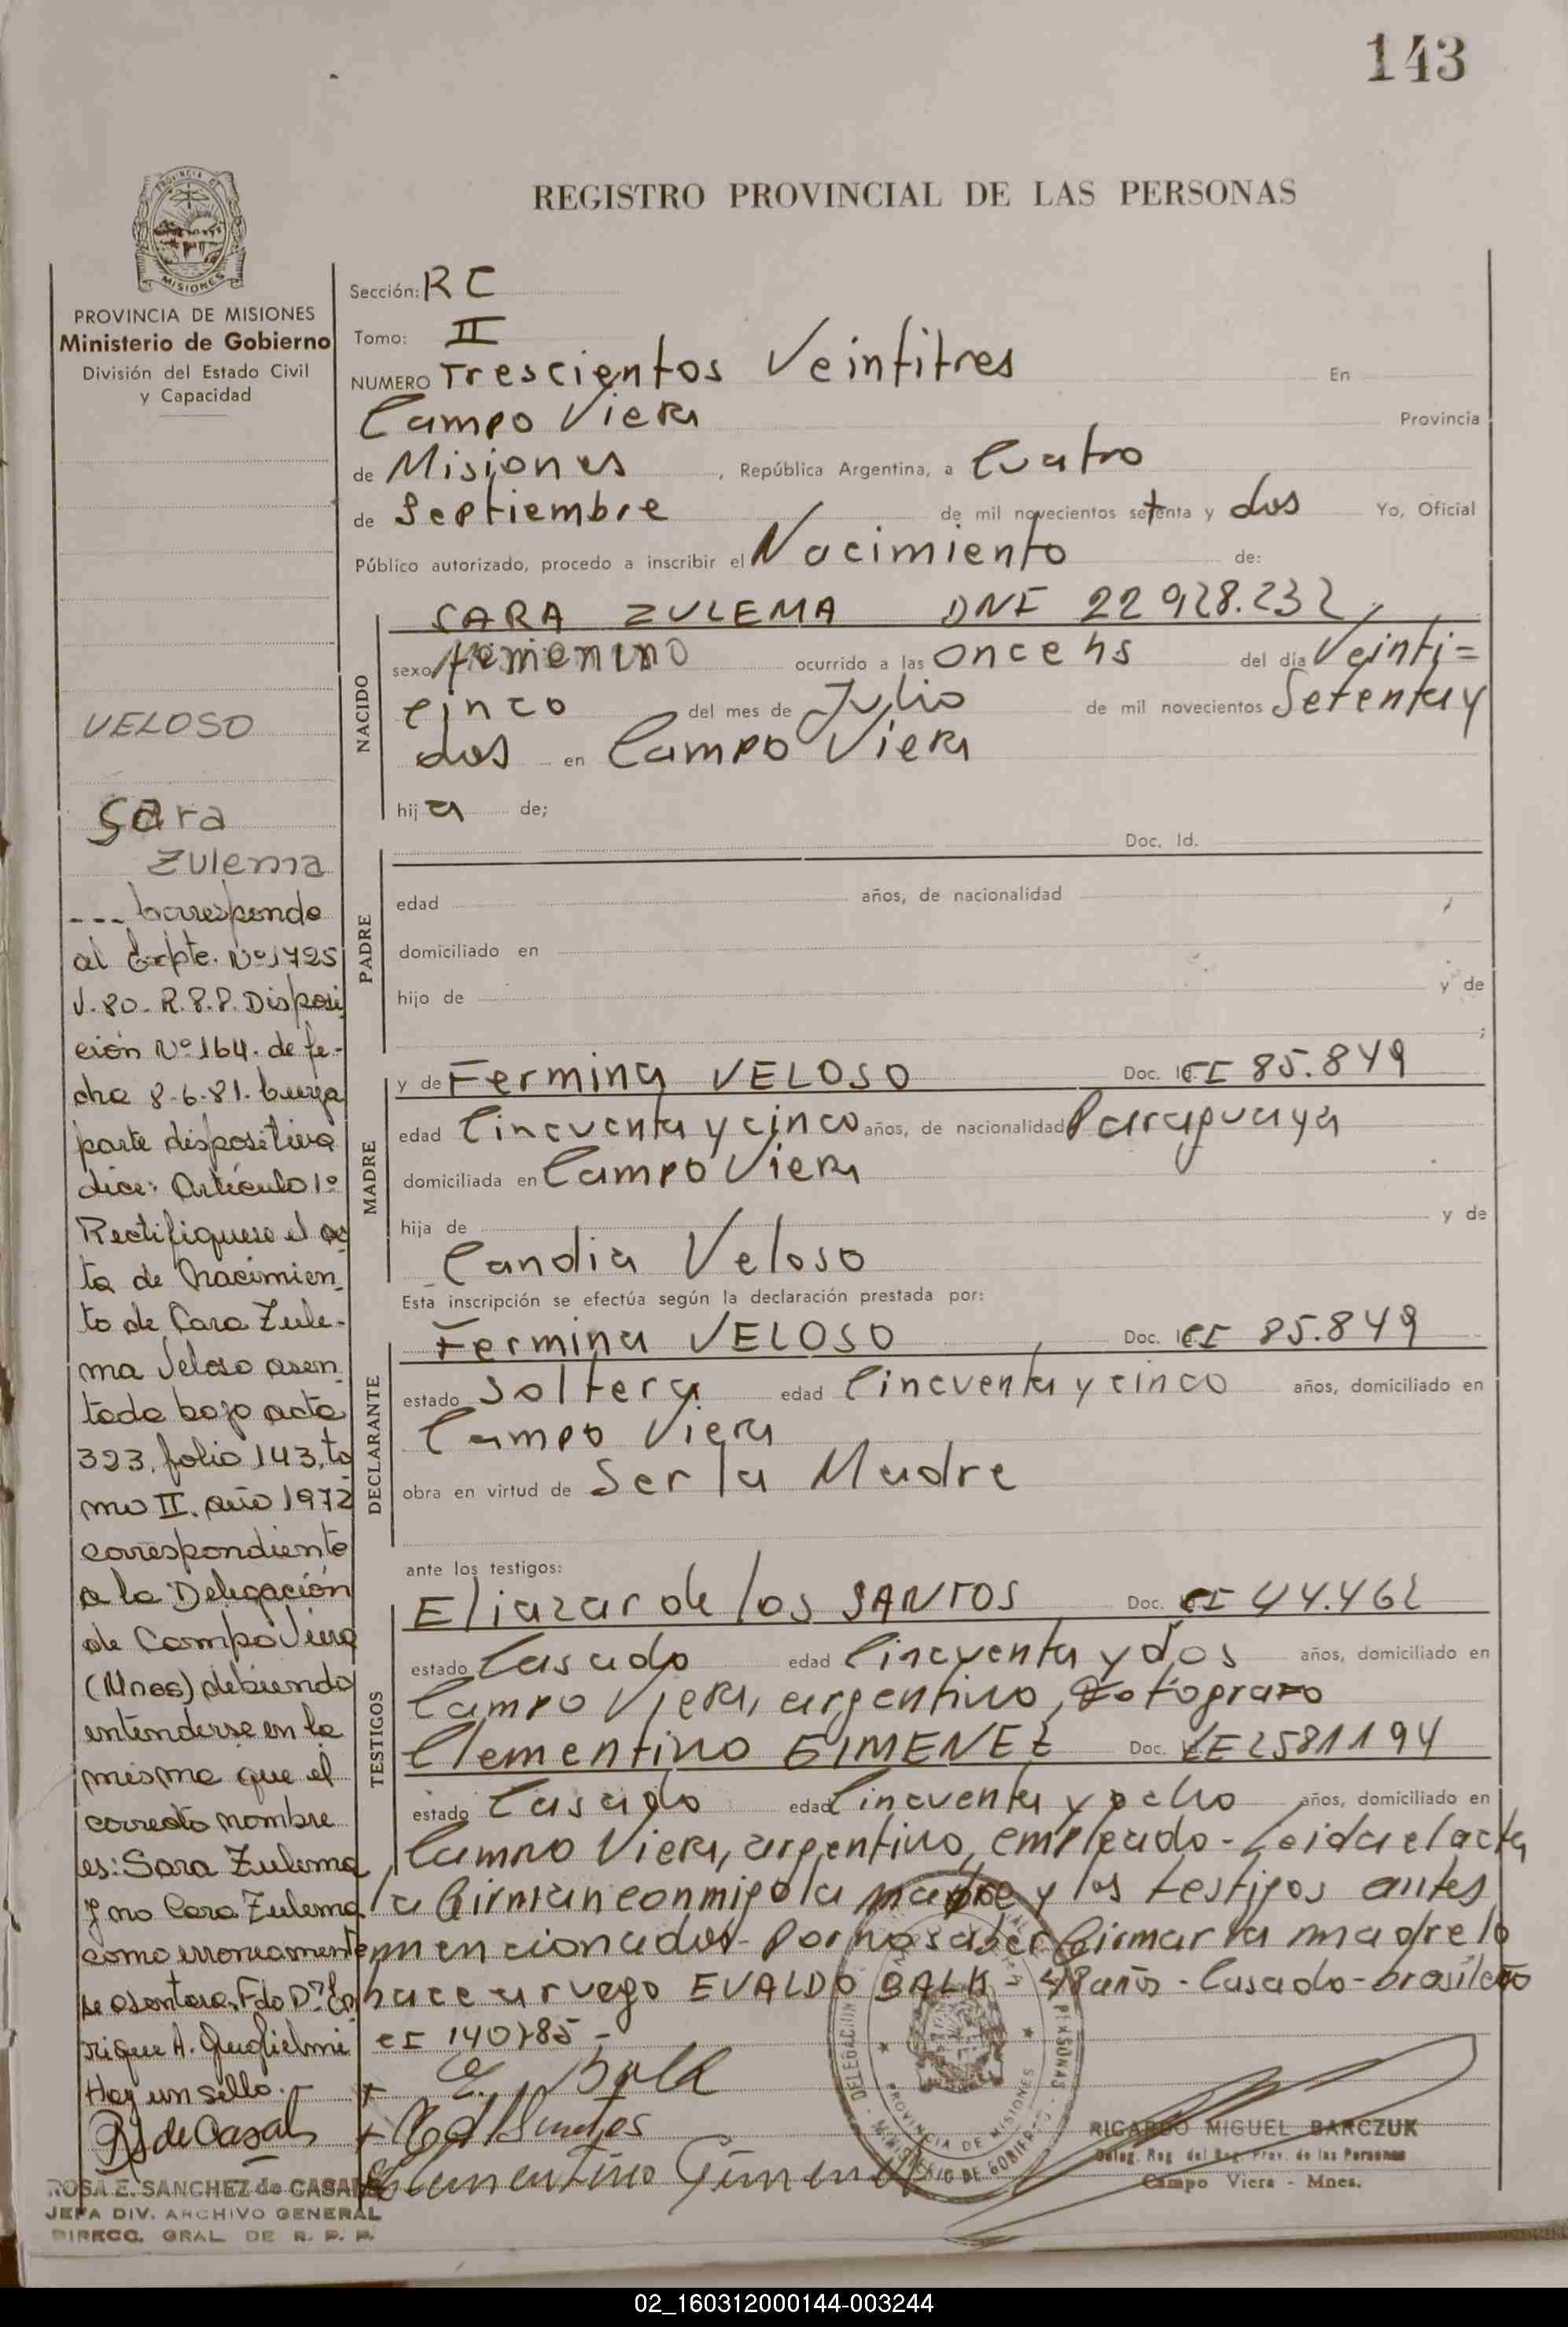 143
PROVINCIA DE
MISIONES
PROVINCIA DE MISIONES
Ministerio de Gobierno
División del Estado Civil
y Capacidad
REGISTRO PROVINCIAL DE LAS PERSONAS
Sección: RC
Tomo: II
NUMERO Trescientos Veintitres En
Campo Viera Provincia
de Misiones , República Argentina, a Cuatro
de Septiembre de mil novecientos setenta y dos Yo, Oficial
Público autorizado, procedo a inscribir el Nacimiento de:
NACIDO
SARA ZULEMA DNI 22 928.232
sexo femenino ocurrido a las once hs del día Veinti=
cinco del mes de Julio de mil novecientos Setenta y
dos en Campo Viera
hija de;
PADRE
Doc. Id.
edad años, de nacionalidad
domiciliado en
hijo de y de
;
MADRE
y de Fermina VELOSO Doc. CI 85.849
edad Cincuenta y cinco años, de nacionalidad Paraguaya
domiciliada en Campo Viera
hija de y de
Candia Veloso
Esta inscripción se efectúa según la declaración prestada por:
DECLARANTE
Fermina VELOSO Doc. CI 85.849
estado Soltera edad Cincuenta y cinco años, domiciliado en
Campo Viera
obra en virtud de Ser la Madre
ante los testigos:
TESTIGOS
Eliazar de los SANTOS Doc. CI 44.462
estado Casado edad Cincuenta y dos años, domiciliado en
Campo Viera, argentino, Fotografo
Clementino GIMENEZ Doc. LE 2581194
estado Casado edad Cincuenta y ocho años, domiciliado en
Campo Viera, argentino, empleado - Leida el acta
la firman conmigo la madre y los testigos antes
mencionados - Por no saber firmar la madre lo
hace a ruego EVALDO BALK - 48 años - Casado - brasileño
CI 140785 -
E. Balk
Clementino Gimenez
DELEGACION
PERSONAS
PROVINCIA DE MISIONES
MINISTERIO DE GOBIERNO
RICARDO MIGUEL BARCZUK
Deleg. Reg. del Reg. Prov. de las Personas
Campo Viera - Mnes.
VELOSO
Sara
Zulema
--- Corresponde
al Expte. Nº 1725
V. 80 - R.P.P. Disposi
ción Nº 164. de fe-
cha 8-6-81. cuya
parte dispositiva
dice: Artículo 1º
Rectifiquese el ac
ta de Nacimien
to de Cara Zule-
ma Veloso asen
tada bajo acta
323, folio 143, to
mo II. año 1972
correspondiente
a la Delegación
de Campo Viera
(Mnes) debiendo
entenderse en la
misma que el
correcto nombre
es: Sara Zulema
y no Cara Zulema
como erroneamente
se asentara. Fdo Dr. En
rique A. Guglielmi
Hay un sello.-
RS de Casals
ROSA E. SANCHEZ de CASALS
JEFA DIV. ARCHIVO GENERAL
DIRECC. GRAL. DE R. P. P.
02_160312000144-003244